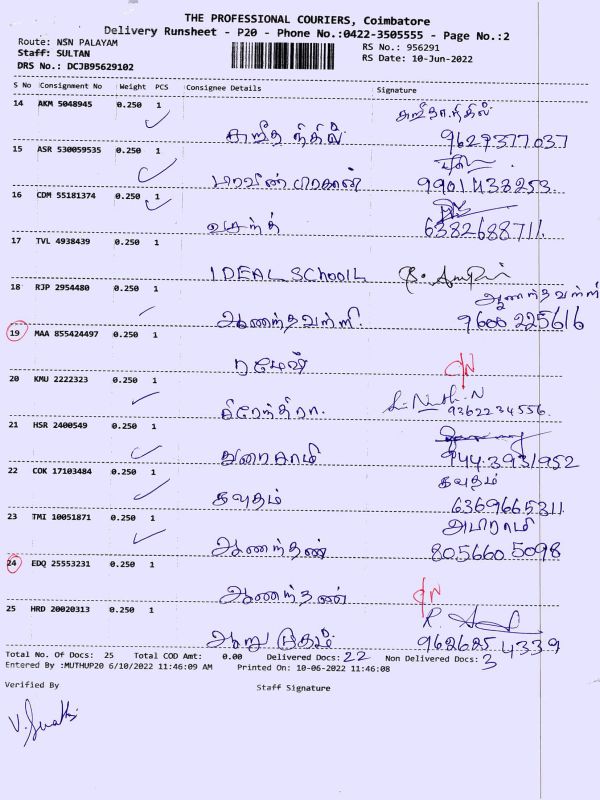 THE PROFESSIONAL COURIERS, Coimbatore
Delivery Runsheet - P20 - Phone No.:0422-3505555 - Page No.:2
Route: NSN PALAYAM
RS No.: 956291
Staff: SULTAN
RS Date: 10-Jun-2022
DRS No.: DCJB95629102
S No Consignment No Weight PCS Consignee Details Signature
14 AKM 5048945 0.250 1
9627377037
15 ASR 530059535 0.250 1
9901438253
16 CDM 55181374 0.250 1
வசந்த் 6382688711.
17 TVL 4938439 0.250 1
IDEAL SCHOOL
18 RJP 2954480 0.250 1
ஆனந்தவள்ளி
ஆனந்தவள்ளி. 9600 225616
19 MAA 855424497 0.250 1
ரமேஷ்
20 KMU 2222323 0.250 1
9362234556.
21 HSR 2400549 0.250 1
துரைசாமி 944 3931952
22 COK 17103484 0.250 1
கவுதம்
கவுதம் 6369665311
23 TMI 10051871 0.250 1
அபிராமி
ஆனந்தன் 805660 5098
24 EDQ 25553231 0.250 1
ஆனந்தன்
25 HRD 20020313 0.250 1
ஆறுமுகம். 962625 4339
Total No. Of Docs: 25 Total COD Amt: 0.00 Delivered Docs: 22 Non Delivered Docs: 3
Entered By :MUTHUP20 6/10/2022 11:46:09 AM Printed On: 10-06-2022 11:46:08
Verified By Staff Signature